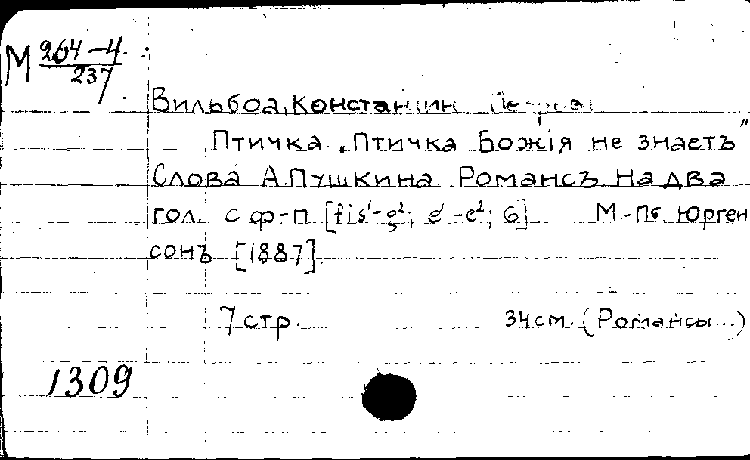 М 264-4
237
Вильбоа, Константин
Птичка. „Птичка Божія не знаетъ"
Слова А.Пушкина Романсъ на два
гол. с ф-п [fis¹-g²; e¹-e²; G] М.-Пб. Юрген
сонъ [1887].
7 стр. 34см. (Романсы...)
1309